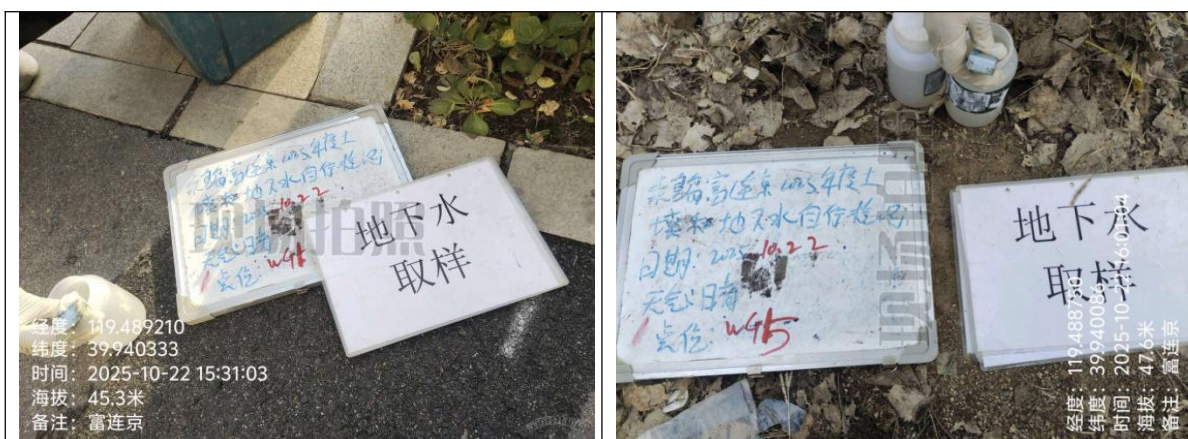 富连京2025年度土
壤和地下水自行监测
日期: 2025.10.22.
天气: 晴
点位:
地下水
取样
现场拍照
经度: 119.489210
纬度: 39.940333
时间: 2025-10-22 15:31:03
海拔: 45.3米
备注: 富连京
富连京2025年度土
壤和地下水自行监测
日期: 2025.10.22.
天气: 晴
点位: WG5
地下水
取样
现场拍照
经度: 119.488750
纬度: 39.940086
时间: 2025-10-22 16:01:04
海拔: 47.6米
备注: 富连京